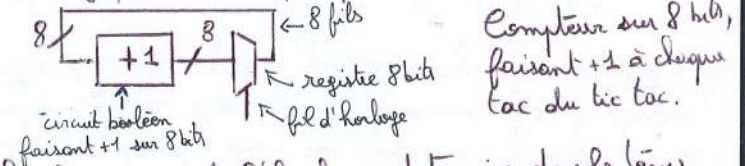 8
+1
8
← 8 fils
registre 8 bits
fil d'horloge
circuit booléen
faisant +1 sur 8 bits
Compteur sur 8 bits,
faisant +1 à chaque
tac du tic tac.